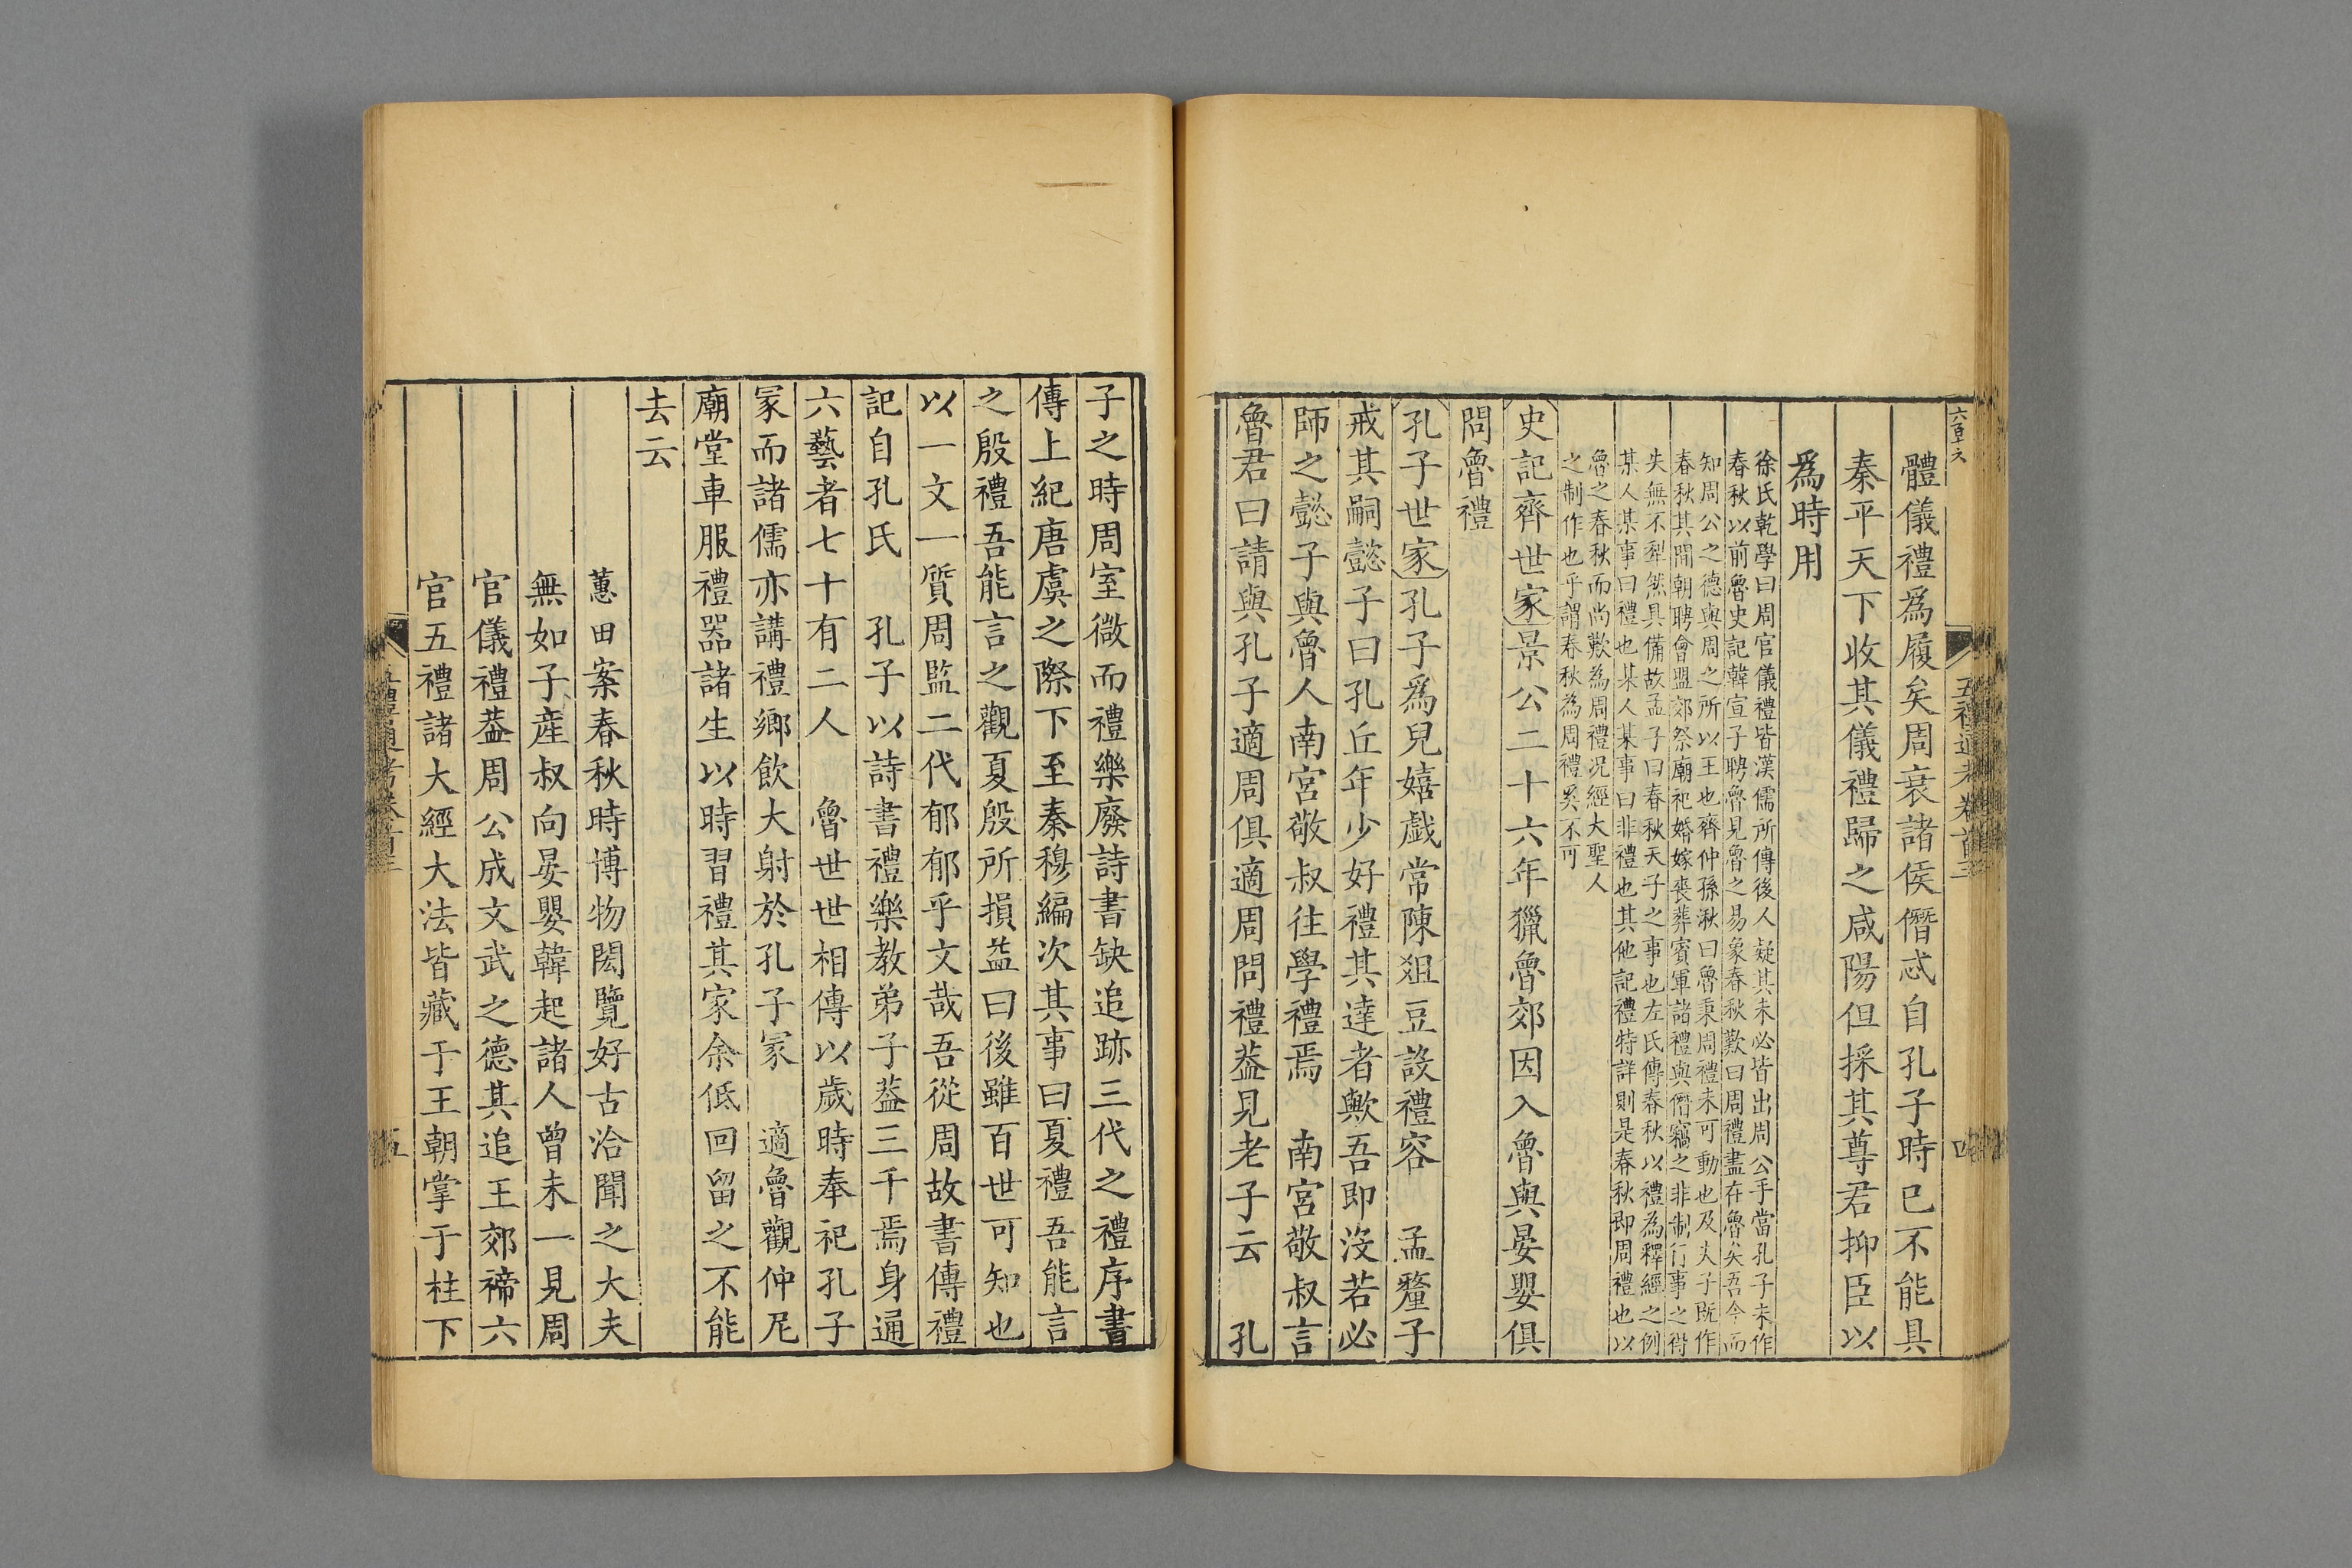 五禮通考卷首三
四
體儀禮爲履矣周衰諸侯僭忒自孔子時已不能具
秦平天下收其儀禮歸之咸陽但採其尊君抑臣以
爲時用
徐氏乾學曰周官儀禮皆漢儒所傳後人疑其未必皆出周公手當孔子未作
春秋以前魯史記韓宣子聘魯見魯之易象春秋歎曰周禮盡在魯矣吾今而
知周公之德與周之所以王也齊仲孫湫曰魯秉周禮未可動也及夫子旣作
春秋其間朝聘會盟郊祭廟祀婚嫁喪葬賓軍諸禮與僭竊之非制行事之得
失無不犁然具備故孟子曰春秋天子之事也左氏傳春秋以禮為釋經之例
某人某事曰禮也某人某事曰非禮也其他記禮特詳則是春秋即周禮也以
魯之春秋而尚歎為周禮况經大聖人
之制作也乎謂春秋為周禮奚不可
史記齊世家景公二十六年獵魯郊因入魯與晏嬰俱
問魯禮
孔子世家孔子爲兒嬉戲常陳俎豆設禮容　孟釐子
戒其嗣懿子曰孔丘年少好禮其達者歟吾即沒若必
師之懿子與魯人南宮敬叔往學禮焉　南宮敬叔言
魯君曰請與孔子適周俱適周問禮葢見老子云　孔
子之時周室微而禮樂廢詩書缺追跡三代之禮序書
傳上紀唐虞之際下至秦穆編次其事曰夏禮吾能言
之殷禮吾能言之觀夏殷所損益曰後雖百世可知也
以一文一質周監二代郁郁乎文哉吾從周故書傳禮
記自孔氏　孔子以詩書禮樂教弟子葢三千焉身通
六藝者七十有二人　魯世世相傳以歲時奉祀孔子
冢而諸儒亦講禮鄉飲大射於孔子冢　適魯觀仲尼
廟堂車服禮器諸生以時習禮其家余低回留之不能
去云
蕙田案春秋時博物閎覽好古洽聞之大夫
無如子產叔向晏嬰韓起諸人曾未一見周
官儀禮葢周公成文武之德其追王郊禘六
官五禮諸大經大法皆藏于王朝掌于柱下
五禮通考卷首三
五